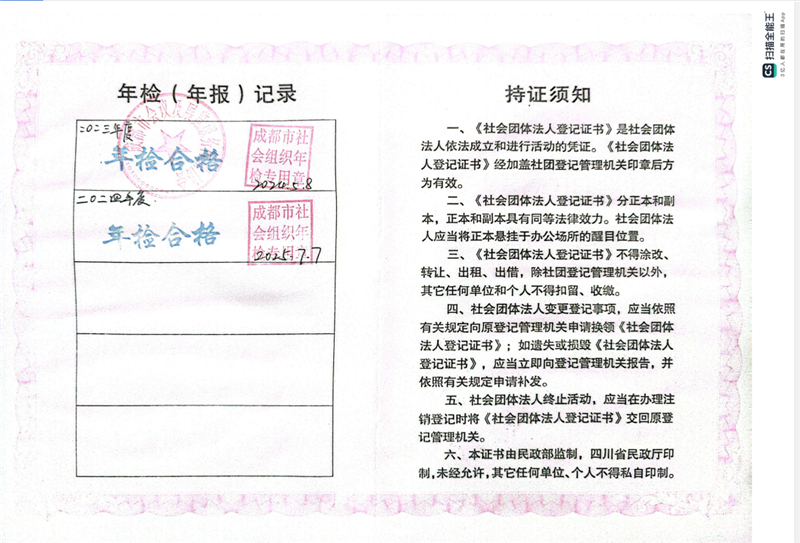 年检（年报）记录
二〇二三年度
年检合格
成都市社
会组织年
检专用章
2024.5.8
二〇二四年度
年检合格
成都市社
会组织年
检专用章
2025.7.7
持证须知
一、《社会团体法人登记证书》是社会团体
法人依法成立和进行活动的凭证。《社会团体法
人登记证书》经加盖社团登记管理机关印章后方
为有效。
二、《社会团体法人登记证书》分正本和副
本，正本和副本具有同等法律效力。社会团体法
人应当将正本悬挂于办公场所的醒目位置。
三、《社会团体法人登记证书》不得涂改、
转让、出租、出借，除社团登记管理机关以外，
其它任何单位和个人不得扣留、收缴。
四、社会团体法人变更登记事项，应当依照
有关规定向原登记管理机关申请换领《社会团体
法人登记证书》；如遗失或损毁《社会团体法人
登记证书》，应当立即向登记管理机关报告，并
依照有关规定申请补发。
五、社会团体法人终止活动，应当在办理注
销登记时将《社会团体法人登记证书》交回原登
记管理机关。
六、本证书由民政部监制，四川省民政厅印
制，未经允许，其它任何单位、个人不得私自印制。
CS 扫描全能王
3亿人都在用的扫描App